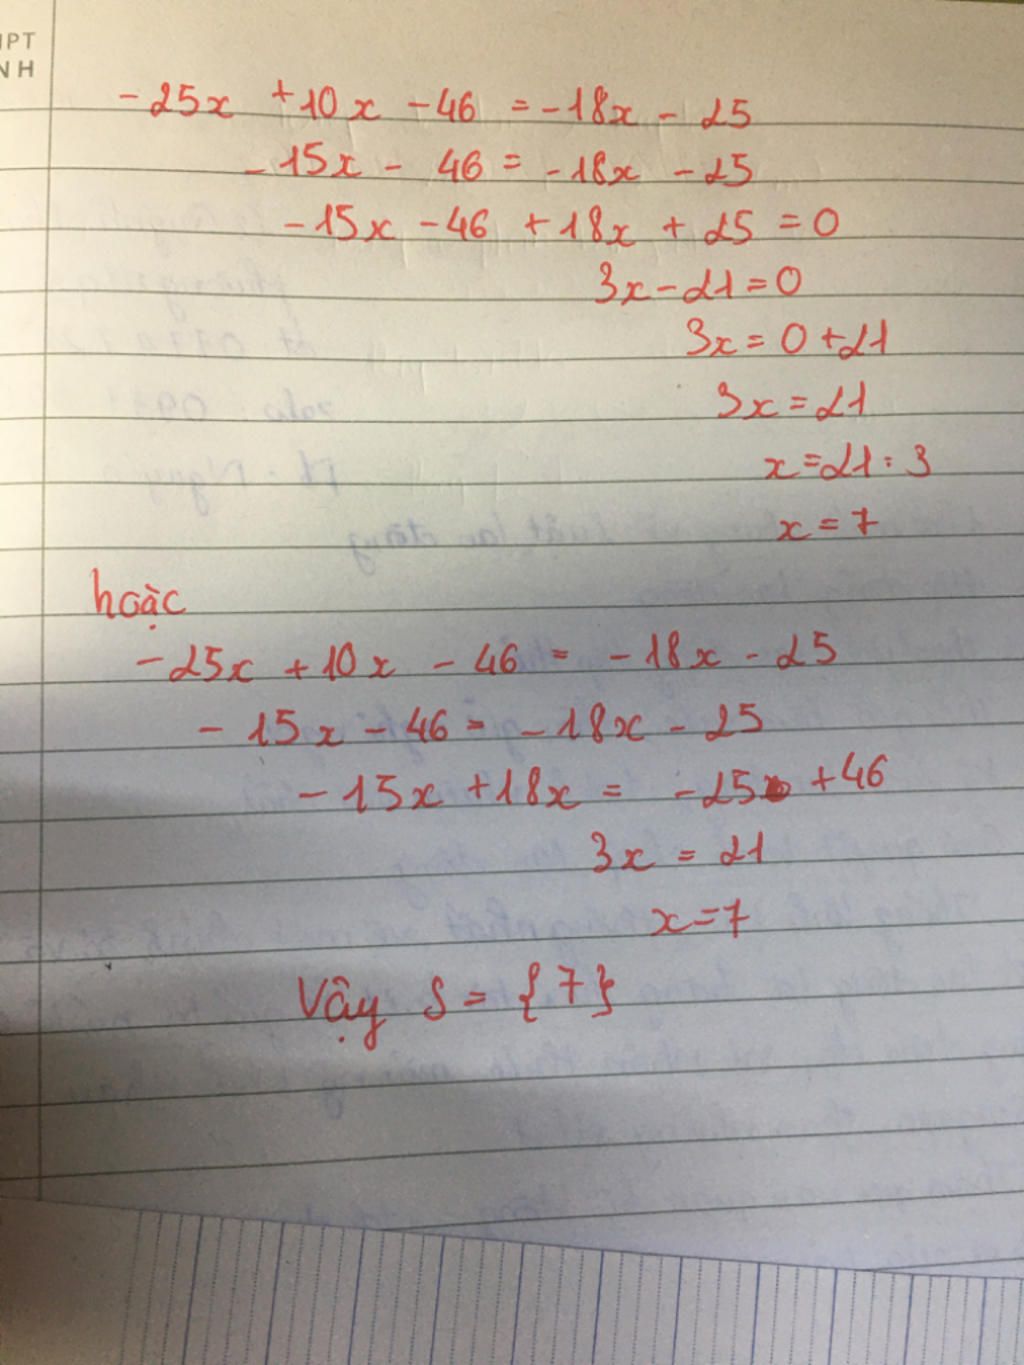 PT
NH
-25x +10x -46 = -18x - 25
-15x - 46 = -18x - 25
-15x - 46 + 18x + 25 = 0
3x - 21 = 0
3x = 0 + 21
3x = 21
x = 21 : 3
x = 7
hoặc
-25x + 10x - 46 = -18x - 25
-15x - 46 = -18x - 25
-15x + 18x = -25 + 46
3x = 21
x = 7
Vậy S = {7}